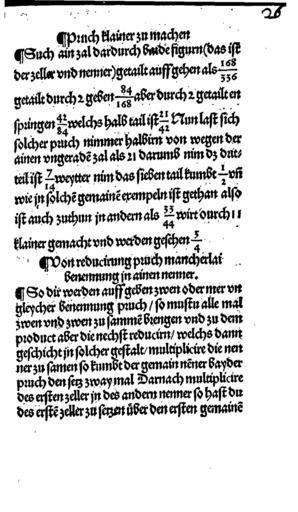 26
¶ Pruch klainer zu machen
¶ Such ain zal dardurch baide figurn (das ist
der zeller vnd nenner) getailt auff gehen als 168/336
getailt durch 2 geben 84/168 aber durch 2 getailt en
springen 42/84 welchs halb tail ist 21/42 Nun last sich
solcher pruch nimmer halbirn von wegen der
ainen vngeradē zal als 21 darumb nim dz drit-
teil ist 7/14 weytter nim das sieben tail kumbt 1/2 vñ
wie jn solchē gemainē exempeln ist gethan also
ist auch zuthun jn andern als 33/44 wirt durch 11
klainer gemacht vnd werden gesehen 3/4
¶ Von reducirung pruch mancherlai
benennung jn ainen nenner.
¶ So dir werden auff geben zwen oder mer vn
gleycher benennung pruch / so mustu alle mal
zwen vnd zwen zu sammē brengen vnd zu dem
product aber die nechst reducirn / welchs dann
geschicht jn solcher gestalt / multiplicire die nen
ner zu samen so kumbt der gemain nēner bayder
pruch den setz zway mal Darnach multiplicire
des ersten zeller jn des andern nenner so hast du
des erstē zeller zu setzen über den ersten gemainē